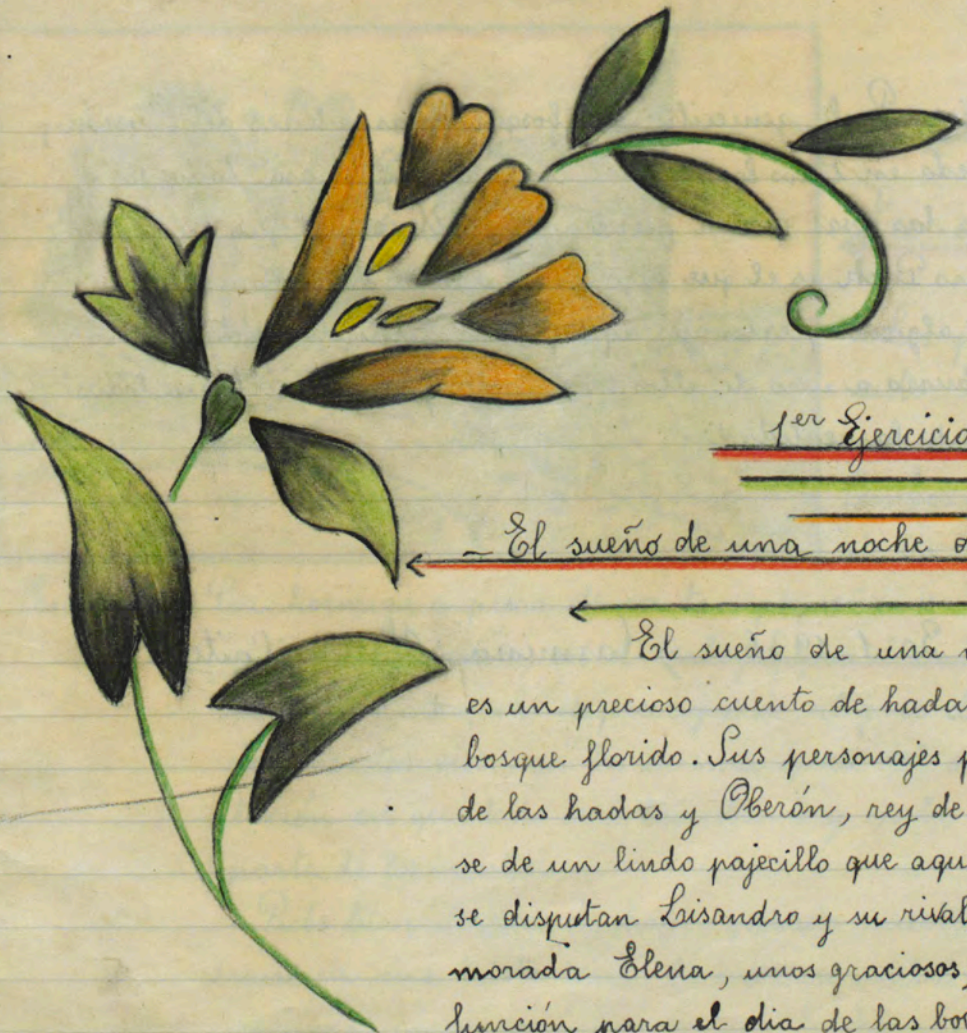 1er Ejercicio
- El sueño de una noche
El sueño de una
es un precioso cuento de hada
bosque florido. Sus personajes
de las hadas y Oberón, rey de
se de un lindo pajecillo que aqu
se disputan Lisandro y su rival
morada Elena, unos graciosos
función para el dia de las bo